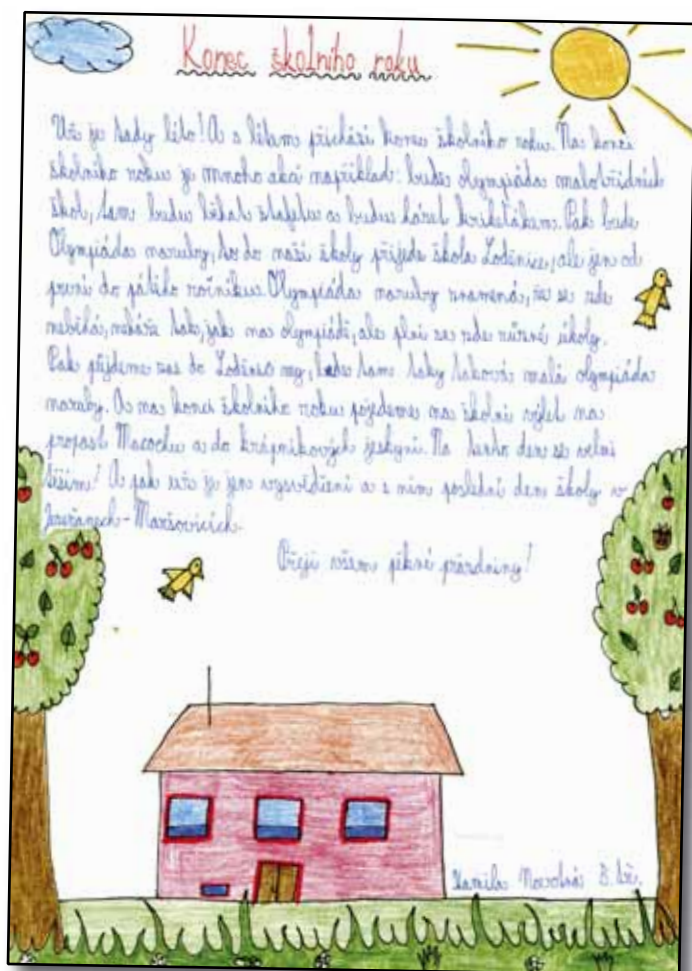 Konec školního roku
Už je tady léto! A s létem přichází konec školního roku. Na konci
školního roku je mnoho akcí například: bude olympiáda malotřídních
škol, tam budu běhat štafetu a budu házet kriketákem. Pak bude
Olympiáda naruby, to do naší školy přijede škola Loděnice, ale jen od
první do pátého ročníku. Olympiáda naruby znamená, že se zde
neběhá, neháže tak, jak na olympiádě, ale plní se zde různé úkoly.
Pak půjdeme zas do Loděnic my, bude tam taky taková malá olympiáda
naruby. A na konci školního roku pojedeme na školní výlet na
propast Macochu a do krápníkových jeskyní. Na tenho den se velmi
těším! A pak už je jen vysvědčení a s ním poslední den školy v
Jezeřanech-Maršovicích.
Přeji všem pěkné prázdniny!
Kamila Novotná 3. tř.